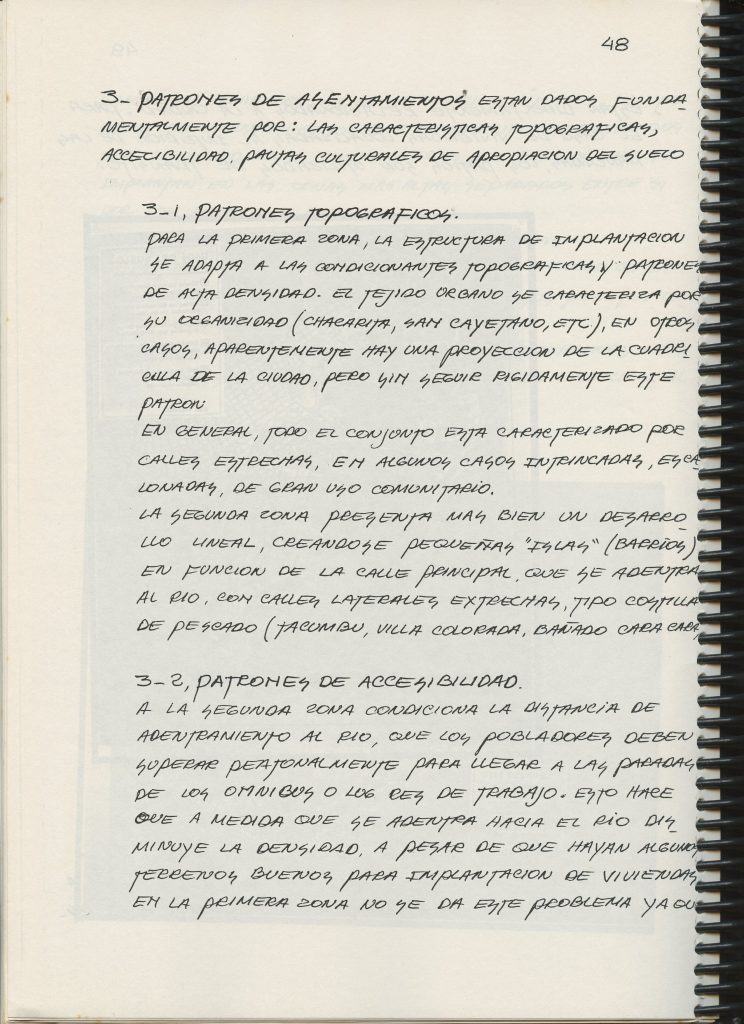 48
3- PATRONES DE ASENTAMIENTOS ESTAN DADOS FUNDA
MENTALMENTE POR: LAS CARACTERISTICAS TOPOGRAFICAS,
ACCECIBILIDAD. PAUTAS CULTURALES DE APROPIACION DEL SUELO
3-1, PATRONES TOPOGRAFICOS.
PARA LA PRIMERA ZONA, LA ESTRUCTURA DE IMPLANTACION
SE ADAPTA A LAS CONDICIONANTES TOPOGRAFICAS Y PATRONES
DE ALTA DENSIDAD. EL TEJIDO URBANO SE CARACTERIZA POR
SU ORGANICIDAD (CHACARITA, SAN CAYETANO, ETC), EN OTROS
CASOS, APARENTEMENTE HAY UNA PROYECCION DE LA CUADRI
CULA DE LA CIUDAD, PERO SIN SEGUIR RIGIDAMENTE ESTE
PATRON.
EN GENERAL, TODO EL CONJUNTO ESTA CARACTERIZADO POR
CALLES ESTRECHAS, EN ALGUNOS CASOS INTRINCADAS, ESCA
LONADAS, DE GRAN USO COMUNITARIO.
LA SEGUNDA ZONA PRESENTA MAS BIEN UN DESARRO
LLO LINEAL, CREANDOSE PEQUEÑAS "ISLAS" (BARRIOS)
EN FUNCION DE LA CALLE PRINCIPAL, QUE SE ADENTRA
AL RIO, CON CALLES LATERALES EXTRECHAS, TIPO COSTILLA
DE PESCADO (TACUMBU, VILLA COLORADA, BAÑADO CARA CARA
3-2, PATRONES DE ACCESIBILIDAD.
A LA SEGUNDA ZONA CONDICIONA LA DISTANCIA DE
ADENTRAMIENTO AL RIO, QUE LOS POBLADORES DEBEN
SUPERAR PEATONALMENTE PARA LLEGAR A LAS PARADAS
DE LOS OMNIBUS O LUGARES DE TRABAJO. ESTO HACE
QUE A MEDIDA QUE SE ADENTRA HACIA EL RIO DIS
MINUYE LA DENSIDAD, A PESAR DE QUE HAYAN ALGUNOS
TERRENOS BUENOS PARA IMPLANTACION DE VIVIENDAS
EN LA PRIMERA ZONA NO SE DA ESTE PROBLEMA YA QU